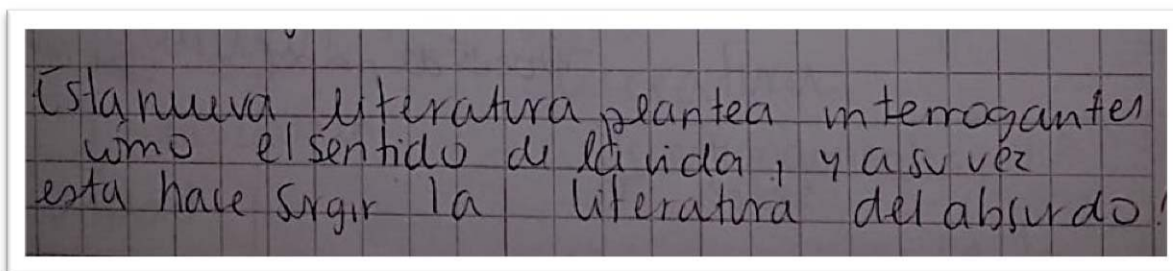 Esta nueva literatura plantea interrogantes
como el sentido de la vida, y a su vez
esta hace surgir la literatura del absurdo.